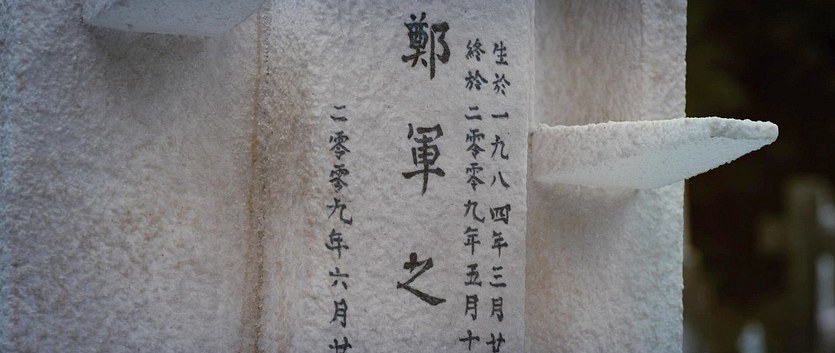 生於一九八四年三月廿
終於二零零九年五月十
鄭軍之
二零零九年六月廿